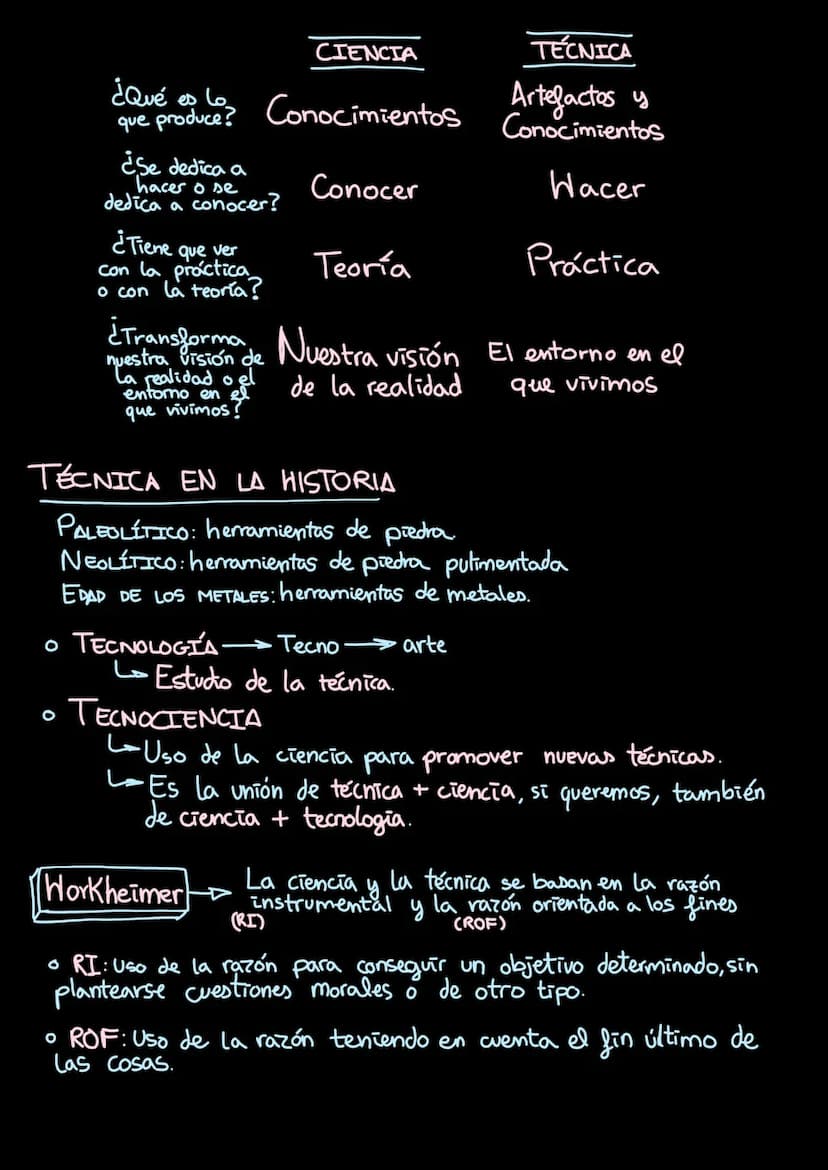 CIENCIA TÉCNICA
¿Qué es lo
que produce?
Conocimientos
Artefactos y
Conocimientos
¿Se dedica a
hacer o se
dedica a conocer?
Conocer
Hacer
¿Tiene que ver
con la práctica
o con la teoría?
Teoría
Práctica
¿Transforma
nuestra visión de
la realidad o el
entorno en el
que vivimos?
Nuestra visión
de la realidad
El entorno en el
que vivimos
TÉCNICA EN LA HISTORIA
PALEOLÍTICO: herramientas de piedra.
NEOLÍTICO: herramientas de piedra pulimentada
EDAD DE LOS METALES: herramientas de metales.
TECNOLOGÍA → Tecno → arte
↳ Estudio de la técnica.
TECNOCIENCIA
↳ Uso de la ciencia para promover nuevas técnicas.
↳ Es la unión de técnica + ciencia, si queremos, también
de ciencia + tecnología.
Horkheimer → La ciencia y la técnica se basan en la razón
instrumental y la razón orientada a los fines
(RI) (ROF)
RI: Uso de la razón para conseguir un objetivo determinado, sin
plantearse cuestiones morales o de otro tipo.
ROF: Uso de la razón teniendo en cuenta el fin último de
las cosas.